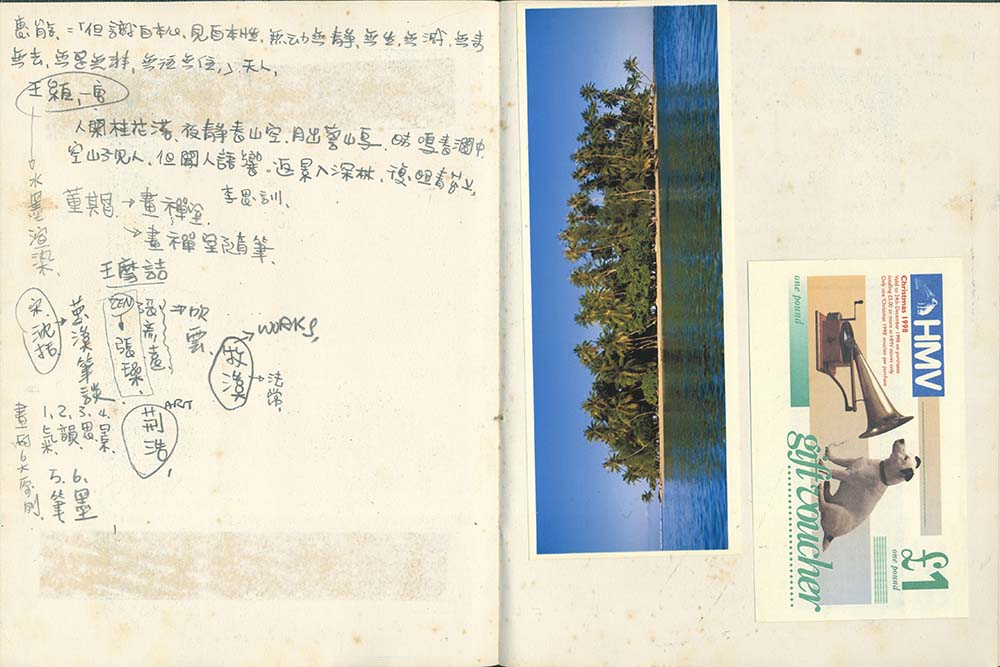 惠能:「但識自本心,見自本性,無動無靜,無生無滅,無去
無來,無是無非,無住無往,」天人,
王維,一畫
人閒桂花落,夜靜春山空,月出驚山鳥,時鳴春澗中,
空山不見人,但聞人語響。返景入深林,復照青苔上
李思訓.
→水墨渲染.
董其昌→畫禪室.
→畫禪室隨筆.
王摩詰
宋.沈括.
夢溪筆談
ZEN
張彥遠
張璪
⇒吹雲.
牧溪
→WORKS,
→法常.
ART
荊浩,
畫
1.氣.
2.韻.
3.思.
4.景.
5.筆
6.墨
HMV
Christmas 1998
Valid to 24th December 1998 on purchases
totalling £5.00 or more at HMV stores only
Only one 'Christmas 1998' voucher per purchase
one pound
gift voucher
£1
one pound